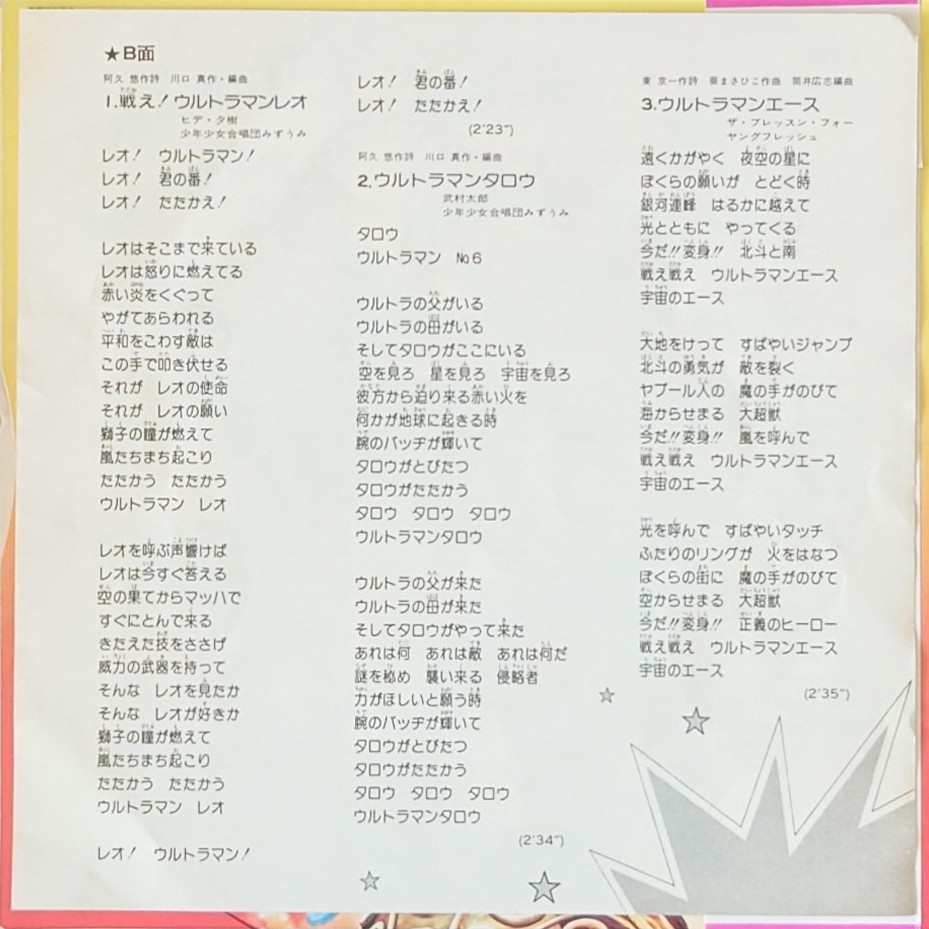 ★B面
阿久 悠作詩 川口 真作・編曲
1.戦え!ウルトラマンレオ
ヒデ・夕樹
少年少女合唱団みずうみ
レオ! ウルトラマン!
レオ! 君の番!
レオ! たたかえ!
レオはそこまで来ている
レオは怒りに燃えてる
赤い炎をくぐって
やがてあらわれる
平和をこわす敵は
この手で叩き伏せる
それが レオの使命
それが レオの願い
獅子の瞳が燃えて
嵐たちまち起こり
たたかう たたかう
ウルトラマン レオ
レオを呼ぶ声響けば
レオは今すぐ答える
空の果てからマッハで
すぐにとんで来る
きたえた技をささげ
威力の武器を持って
そんな レオを見たか
そんな レオが好きか
獅子の瞳が燃えて
嵐たちまち起こり
たたかう たたかう
ウルトラマン レオ
レオ! ウルトラマン!
レオ! 君の番!
レオ! たたかえ!
(2'23")
阿久 悠作詩 川口 真作・編曲
2.ウルトラマンタロウ
武村太郎
少年少女合唱団みずうみ
タロウ
ウルトラマン No6
ウルトラの父がいる
ウルトラの母がいる
そしてタロウがここにいる
空を見ろ 星を見ろ 宇宙を見ろ
彼方から迫り来る赤い火を
何かが地球に起きる時
腕のバッヂが輝いて
タロウがとびたつ
タロウがたたかう
タロウ タロウ タロウ
ウルトラマンタロウ
ウルトラの父が来た
ウルトラの母が来た
そしてタロウがやって来た
あれは何 あれは敵 あれは何だ
謎を秘め 襲い来る 侵略者
力がほしいと願う時
腕のバッヂが輝いて
タロウがとびたつ
タロウがたたかう
タロウ タロウ タロウ
ウルトラマンタロウ
(2'34")
東 京一作詩 葵まさひこ作曲 筒井広志編曲
3.ウルトラマンエース
ザ・ブレッスン・フォー
ヤングフレッシュ
遠くかがやく 夜空の星に
ぼくらの願いが とどく時
銀河連峰 はるかに越えて
光とともに やってくる
今だ!!変身!! 北斗と南
戦え戦え ウルトラマンエース
宇宙のエース
大地をけって すばやいジャンプ
北斗の勇気が 敵を裂く
ヤプール人の 魔の手がのびて
海からせまる 大超獣
今だ!!変身!! 嵐を呼んで
戦え戦え ウルトラマンエース
宇宙のエース
光を呼んで すばやいタッチ
ふたりのリングが 火をはなつ
ぼくらの街に 魔の手がのびて
空からせまる 大超獣
今だ!!変身!! 正義のヒーロー
戦え戦え ウルトラマンエース
宇宙のエース
(2'35")